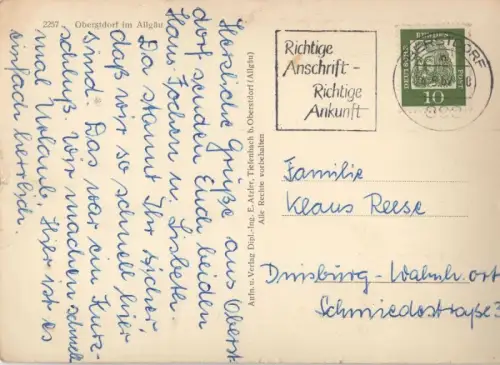 2257 - Oberstdorf im Allgäu
Herzliche Grüße aus Oberst-
dorf senden Euch beiden
Hans-Jochen u. Lisbeth
Da staunt Ihr sicher,
daß wir so schnell hier
sind. Das war ein Kurz-
schluß. Wir machen schnell
mal Urlaub. Hier ist es
einfach herrlich.
Aufn. u. Verlag Dipl.-Ing. E. Atzler, Tiefenbach b. Oberstdorf (Allgäu)
Alle Rechte vorbehalten
Richtige
Anschrift -
Richtige
Ankunft
DEUTSCHE
BUNDES
POST
10
Familie
Klaus Reese
Duisburg-Walsh. ort
Schmiedestraße 3